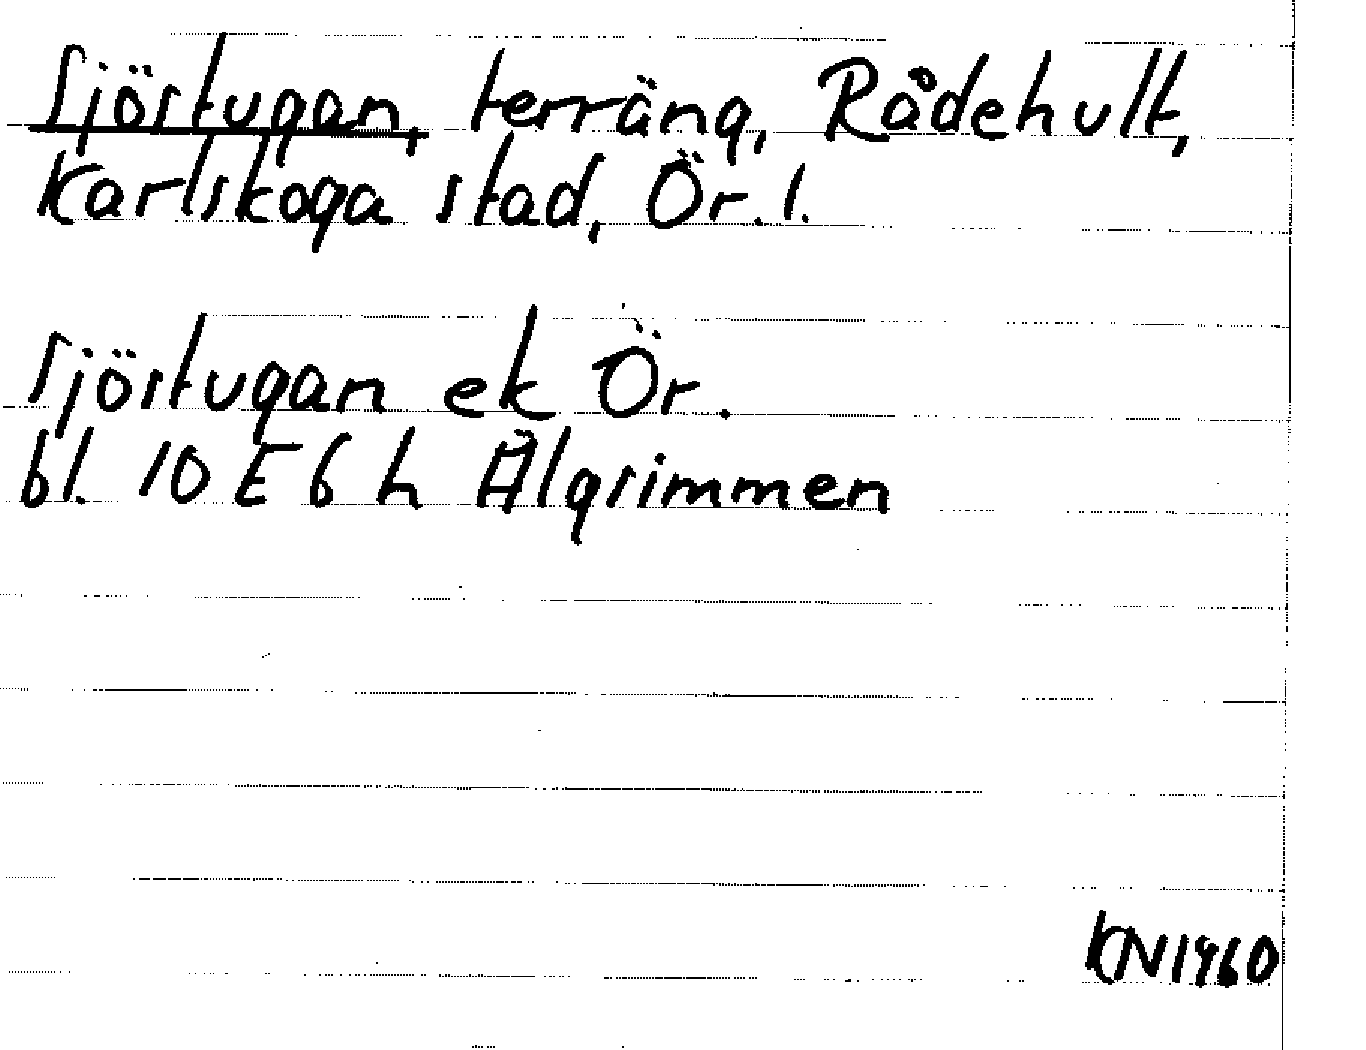 Sjöstugan, terräng, Rådehult,
Karlskoga stad, Ör. l.
Sjöstugan ek Ör.
bl. 10 E 6 h Älgsimmen
KN1960